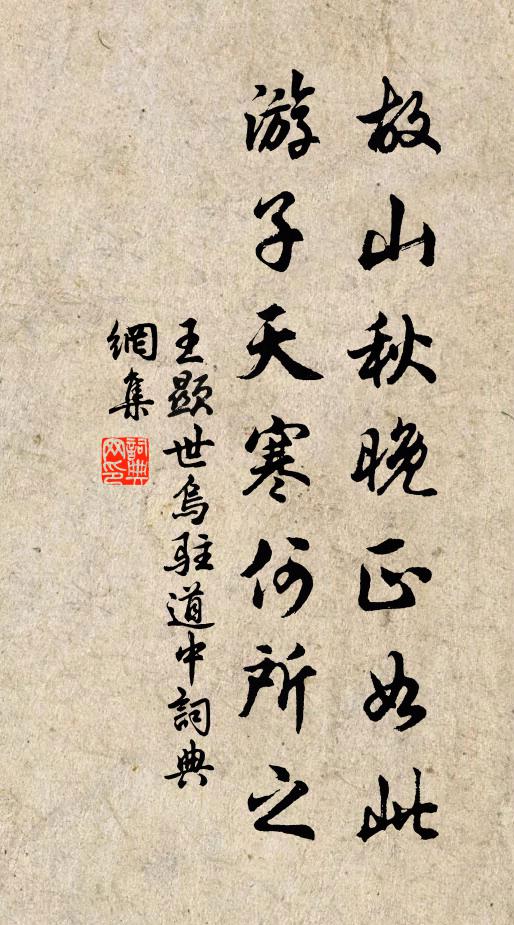 故山秋晚正如此
游子天寒何所之
王顯世烏駐道中詞典
網集
詞典
网印